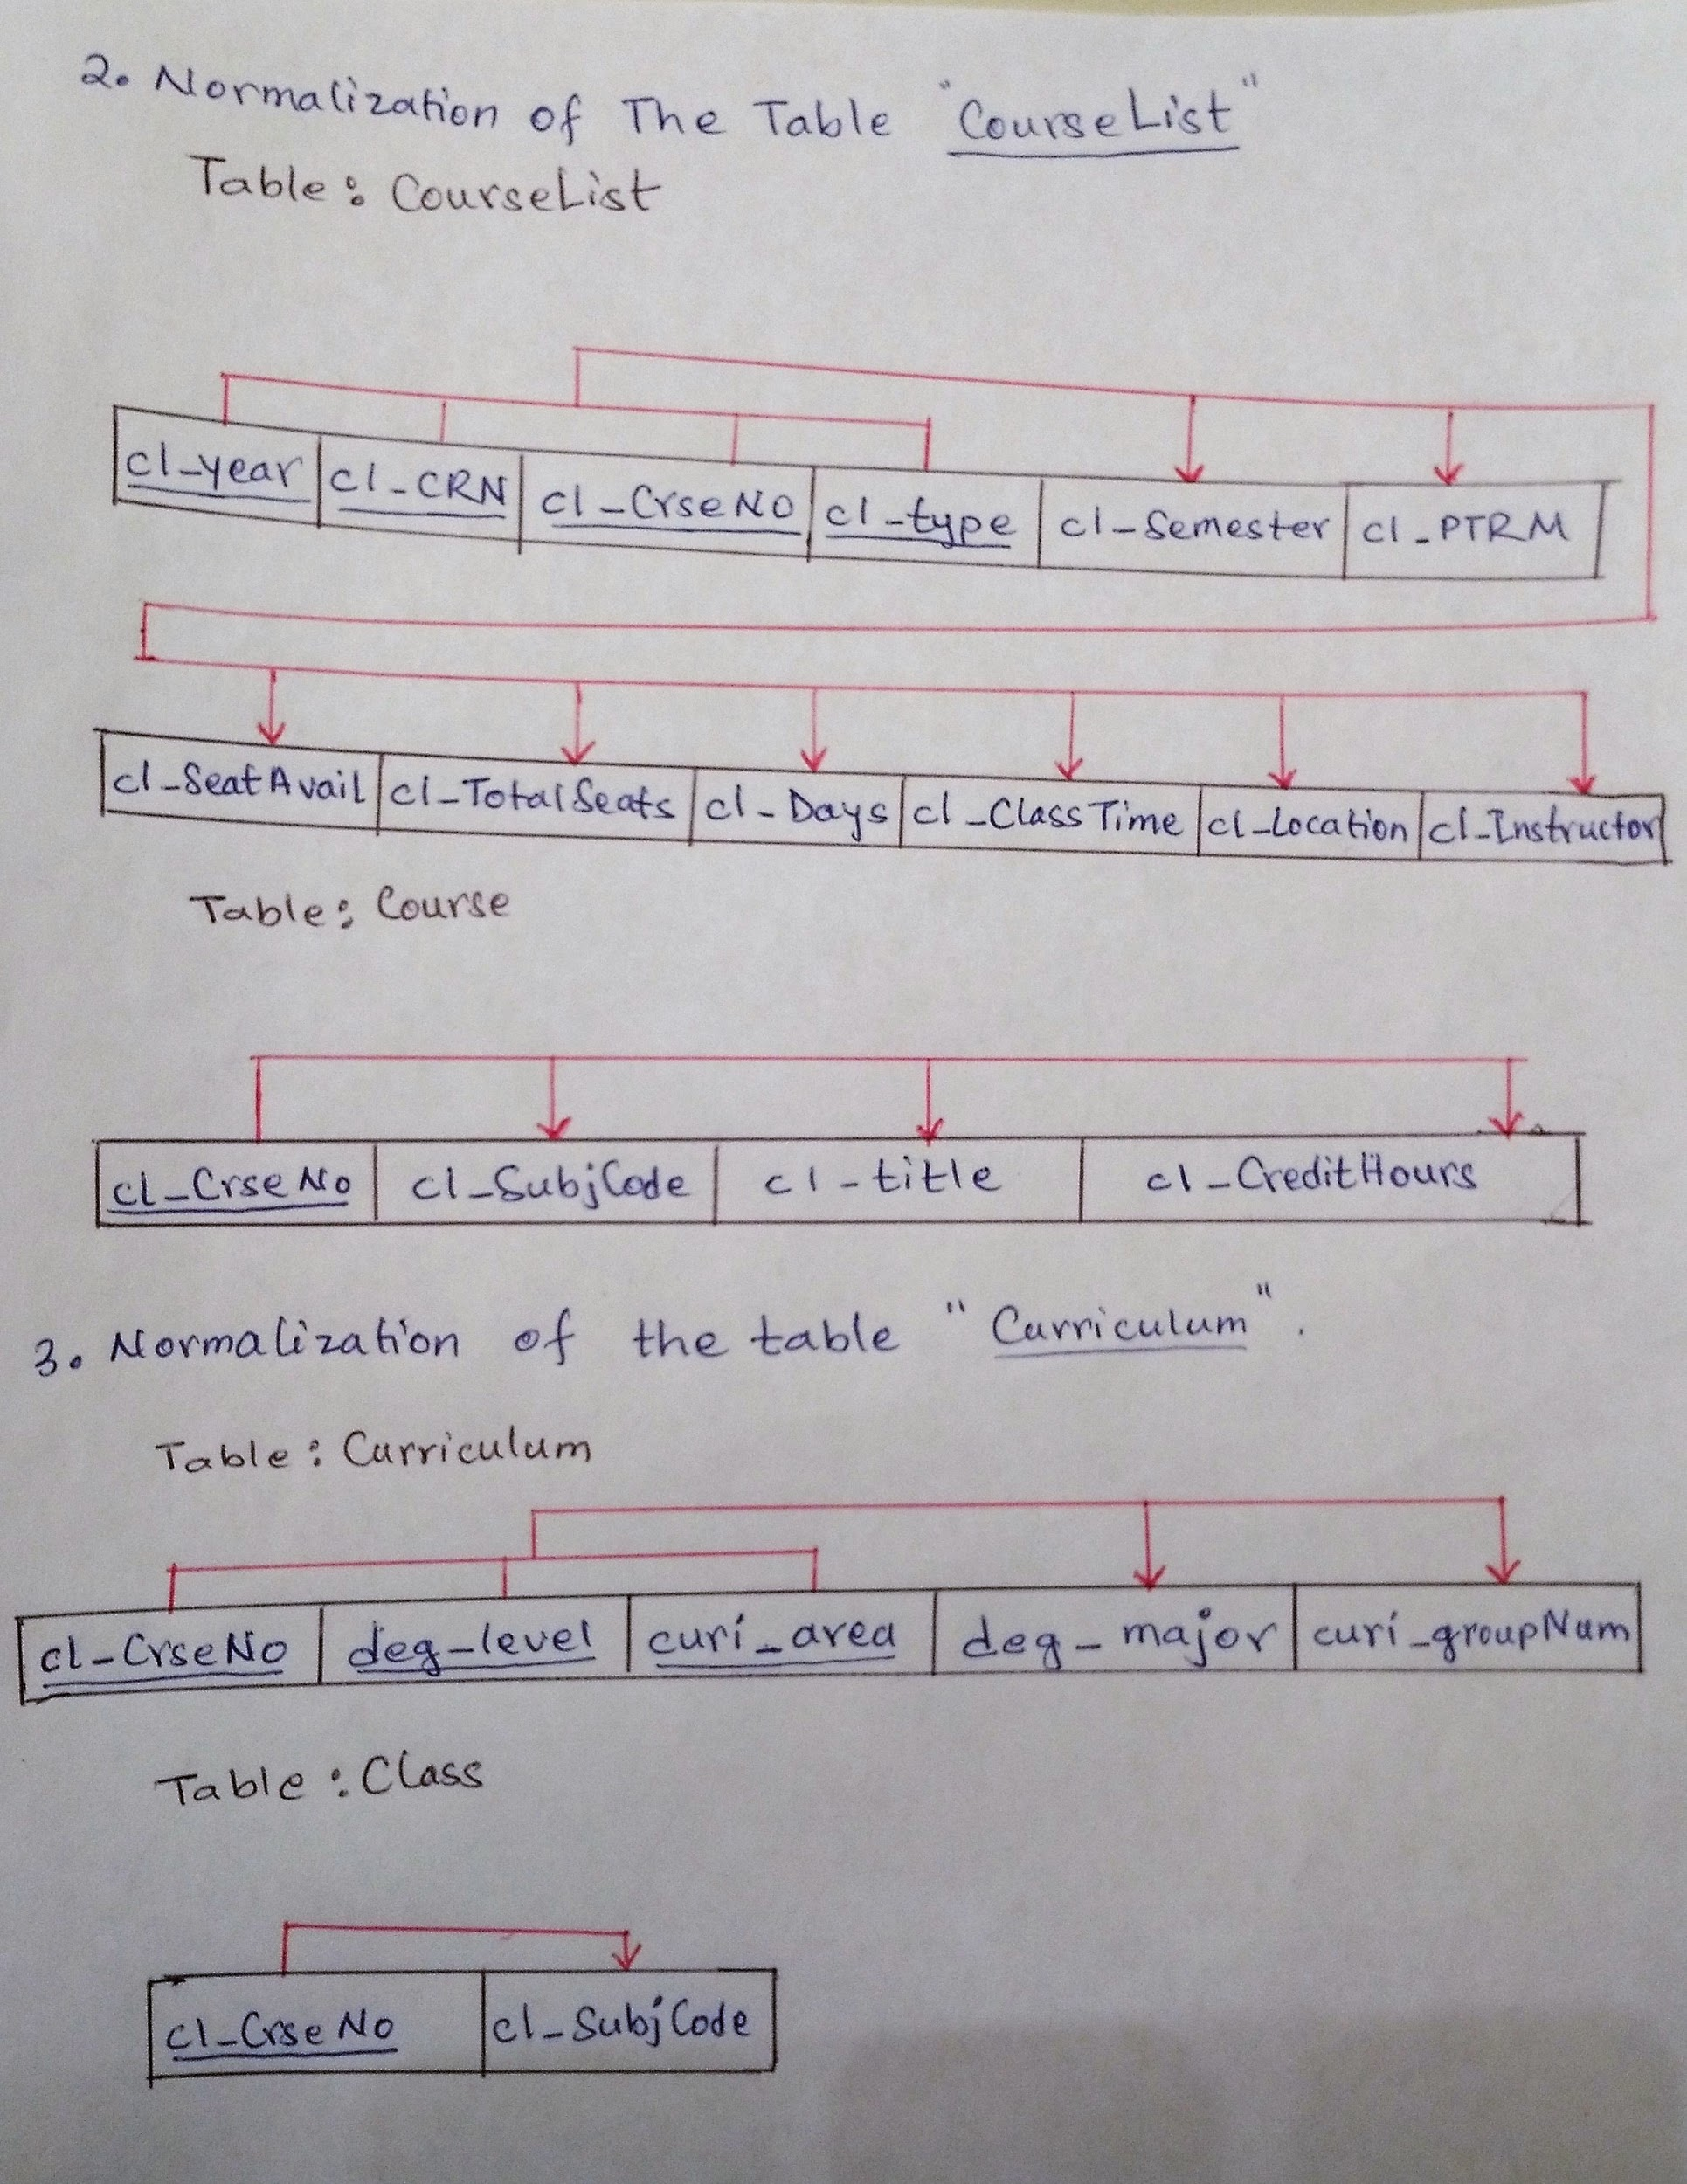 2. Normalization of The Table "CourseList"
Table: CourseList
cl_year cl_CRN cl_CrseNO cl_type cl_Semester cl_PTRM
cl_SeatAvail cl_TotalSeats cl_Days cl_ClassTime cl_Location cl_Instructor
Table: Course
cl_CrseNo cl_SubjCode cl_title cl_CreditHours
3. Normalization of the table "Curriculum".
Table: Curriculum
cl_CrseNo deg_level curi_area deg_major curi_groupNum
Table: Class
cl_CrseNo cl_SubjCode